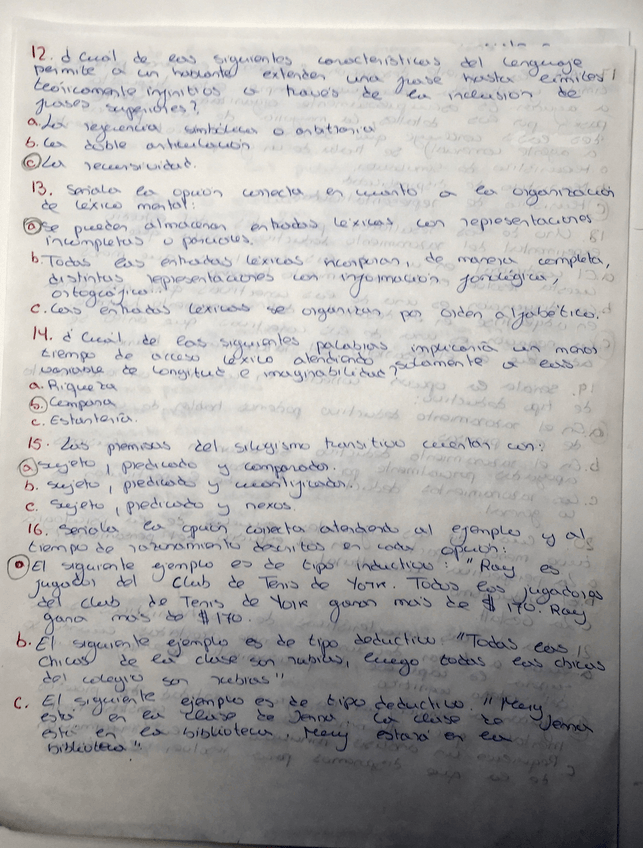 12. ¿Cuál de las siguientes características del lenguaje
permite a un hablante extender una frase hasta límites
teóricamente infinitios a través de la inclusión de
frases superiores?
a. La referencia simbólica o arbitraria
b. La doble articulación
c. La recursividad.
13. Señala la opción correcta en cuanto a la organización
de léxico mental:
a. Se pueden almacenar entradas léxicas con representaciones
incompletas o parciales.
b. Todas las entradas léxicas incorporan, de manera completa,
distintas representaciones con información fonológica,
ortográfica.
c. Las entradas léxicas se organizan por orden alfabético.
14. ¿Cuál de las siguientes palabras implicaría un menor
tiempo de acceso léxico atendiendo solamente a las
variable de longitud e imaginabilidad?
a. Riqueza
b. Campana
c. Estantería.
15. Las premisas del silogismo transitivo cuentan con:
a. sujeto, predicado y comparador.
b. sujeto, predicado y cuantificador.
c. sujeto, predicado y nexos.
16. Señala la opción correcta atendiendo al ejemplo y al
tiempo de razonamiento descritos en cada opción:
a. El siguiente ejemplo es de tipo inductivo: "Ray es
jugador del Club de Tenis de York. Todos los jugadores
del club de Tenis de York ganan más de $170. Ray
gana más de $170.
b. El siguiente ejemplo es de tipo deductivo "Todas las
chicas de la clase son rubias, luego todas las chicas
del colegio son rubias"
c. El siguiente ejemplo es de tipo deductivo. "Mery
está en la clase de Jenna. La clase de Jenna
está en la biblioteca. Mery estará en la
biblioteca".